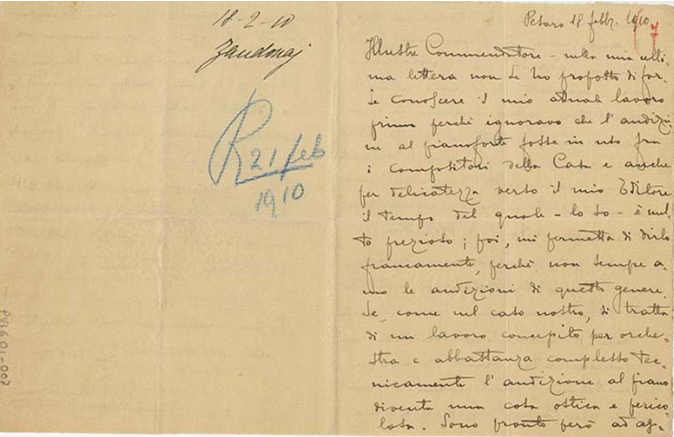 18-2-10
Zandonaj
R 21 feb
1910
Pesaro 18 febbr. 1910
7
Illustre Commendatore - nella mia ulti-
ma lettera non Le ho proposto di far-
Le conoscere il mio attuale lavoro
prima perchè ignoravo che l'audizio-
ne al pianoforte fosse in uso fra
i compositori della Casa e anche
per delicatezza verso il mio Editore
il tempo del quale - lo so - è mol-
to prezioso; poi, mi permetta di dirlo
francamente, perchè non sempre a-
mo le audizioni di questo genere.
Se, come nel caso nostro, si tratta
di un lavoro concepito per orche-
stra e abbastanza complesso tec-
nicamente l'audizione al piano
diventa una cosa ostica e perico-
losa. Sono pronto però ad ag-